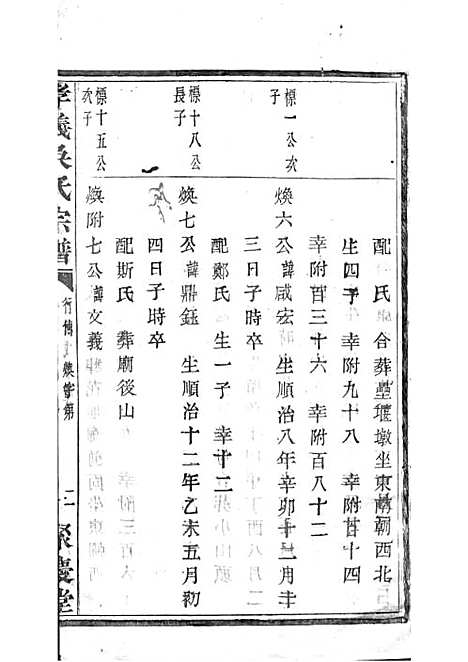 配 氏 合葬堊堰墩坐東南朝西北
生四子 幸附九十八 幸附百十四
幸附百三十六 幸附百八十二
標一公次子
煥六公諱咸宏 生順治八年辛卯十二月廿
三日子時卒
配鄭氏 生一子 幸十三
標十八公長子
煥七公諱鼎鈺 生順治十二年乙未五月初
四日子時卒
配斯氏 葬廟後山
標十五公次子
煥附七公諱文義
孝義吳氏宗譜
行傳 煥字第
聚慶堂